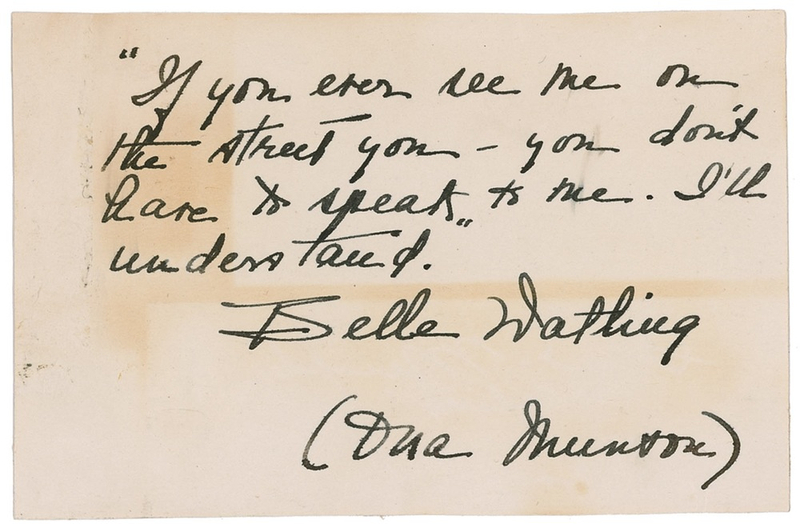 "If you ever see me on
the street you – you don't
have to speak to me. I'll
understand."
Belle Watling
(Ona Munson)